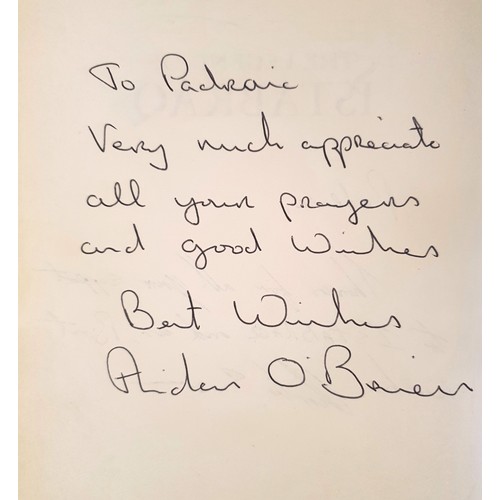 To Padraic
Very much appreciate
all your prayers
and good Wishes
Best Wishes
Aidan O'Brien